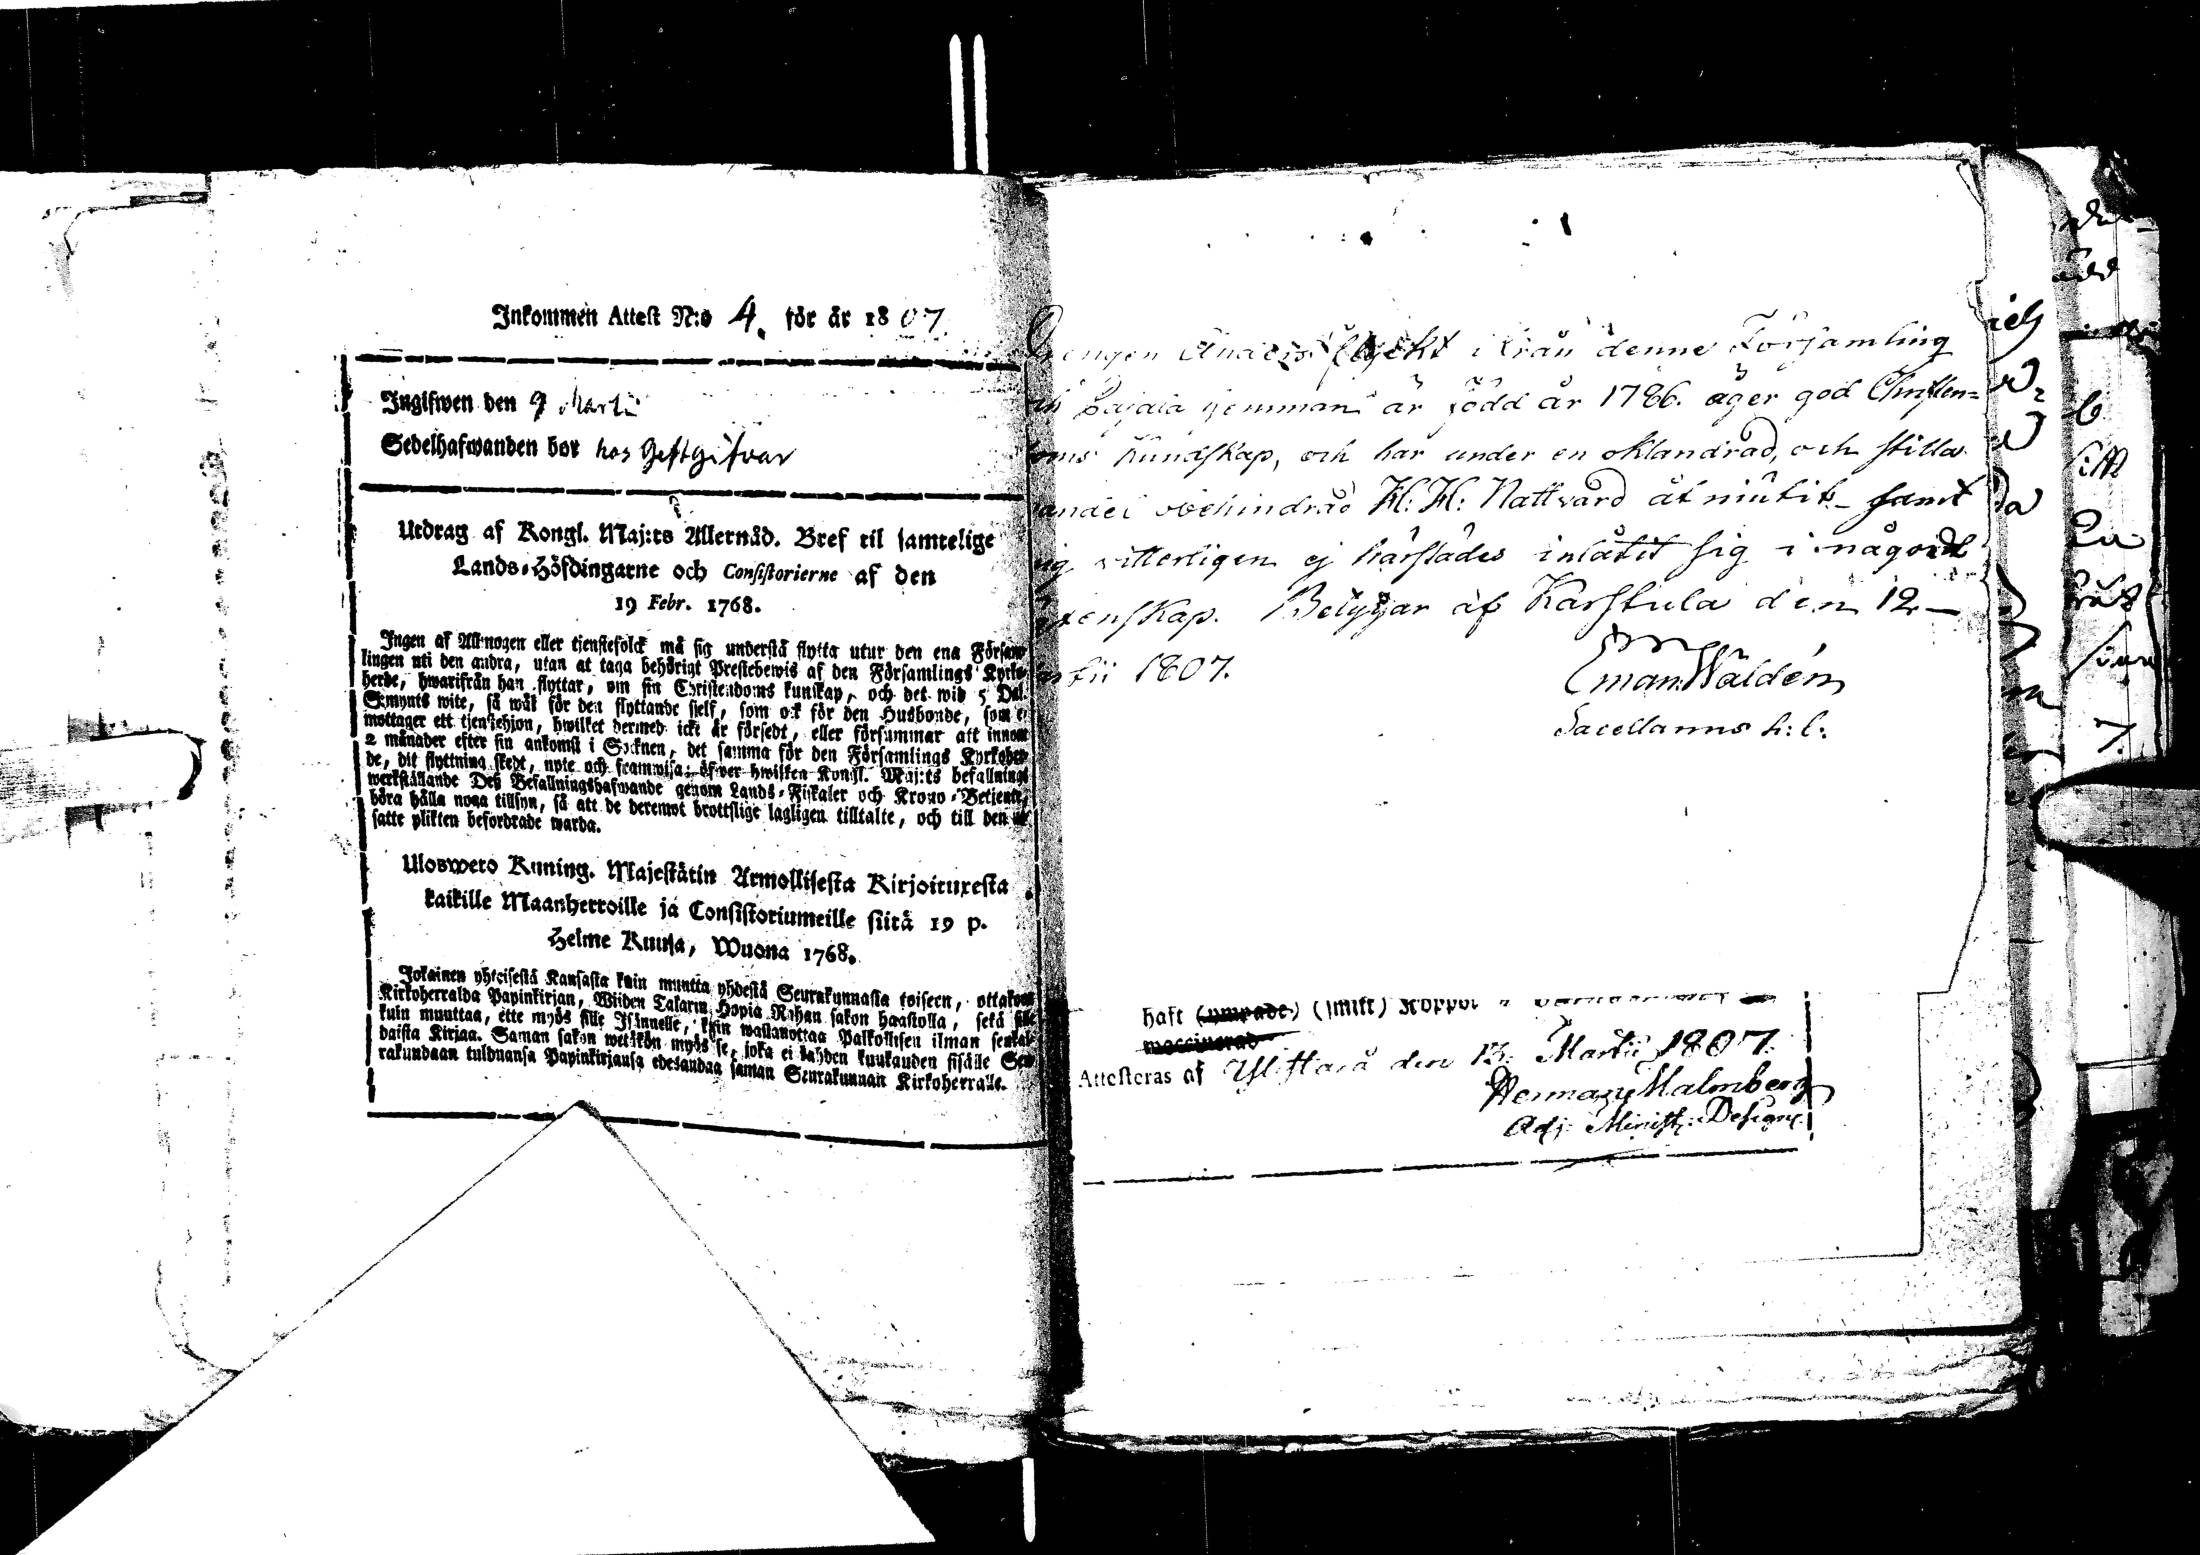 Inkommen Attest N:o 4. för år 1807
Ingifwen den 9 Martii
Sedelhafwanden bor hos Gestgifvar
Utdrag af Kongl. Maj:ts Allernåd. Bref til samtelige
Lands-Höfdingarne och Consistorierne af den
19 Febr. 1768.
Ingen af Allmogen eller tjenstefolck må sig understå flytta utur den ena Försam-
lingen uti den andra, utan at taga behörigt Prestebewis af den Församlings Kyrko-
herde, hwarifrån han flyttar, om sin Christendoms kunskap, och det wid 5 Dal.
S:mynts wite, så wäl för den flyttande sielf, som ock för den Husbonde, som e
mottager ett tjenstehjon, hwilket dermed icke är försedt, eller försummar att innom
2 månader efter sin ankomst i Socknen, det samma för den Församlings Kyrkoher-
de, dit flyttning skedt, upte och framwisa; öfwer hwilken Kongl. Maj:ts befallnings
werkställande Deß Befallningshafwande genom Lands-Fiskaler och Krono-Betjente,
böra hålla noga tillsyn, så att de deremot brottslige lagligen tilltalte, och till den ut
satte plikten befordrade warda.
Uloswero Kuning. Majestätin Armollisesta Kirjoituxesta
kaikille Maanherroille ja Consistoriumeille siitä 19 p.
Helme Kuusa, Wuona 1768.
Jokainen yhteisestä Kansasta kuin muutta yhdestä Seurakunnasta toiseen, ottakoon
Kirkoherralda Papinkirjan, Wiiden Talarin Hopia Rahan sakon haastolla, sekä sille
kuin muuttaa, ette myös sille Isännelle, kuin wastanottaa Palkollisen ilman senkal-
daista Kirjaa. Saman sakon wetäkön myös se, joka ei kahden kuukauden sisälle Seu-
rakundaan tulduansa Papinkirjansa edesandaa saman Seurakunnan Kirkoherralle.
Drengen Anders ifrån denne Församling
är född år 1786. äger god Christen=
doms Kundskap, och har under en oklandrad, och stilla
vandel obehindrad H: H: Nattvard åtniutit samt
sig vitterligen ej härstädes inlåtit sig i något
Betygar af Karstula den 12
Martii 1807.
Eman. Waldén
Sacellanus h: l:
haft (ympade) (smitt) Koppor
vaccinerad
Attesteras af Ylistaro den 13 Martii 1807.
Herman Malmberg
Adj: Minist: Design: